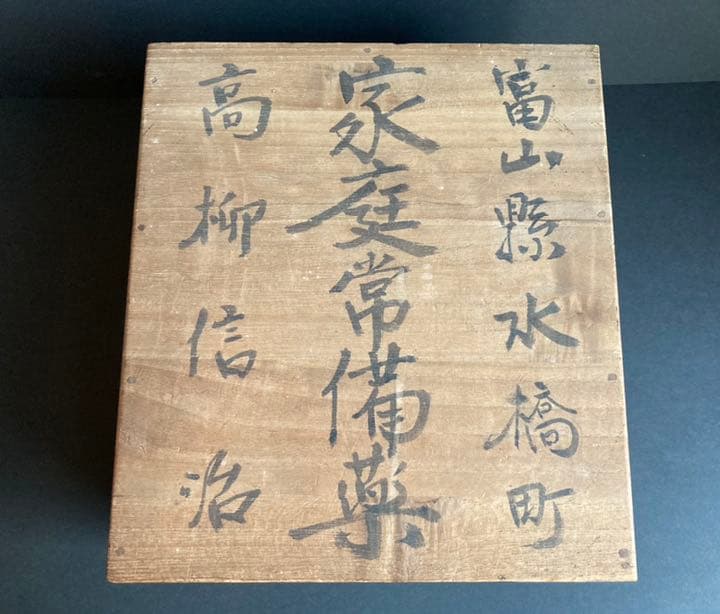 富山縣水橋町
家庭常備薬
高柳信治